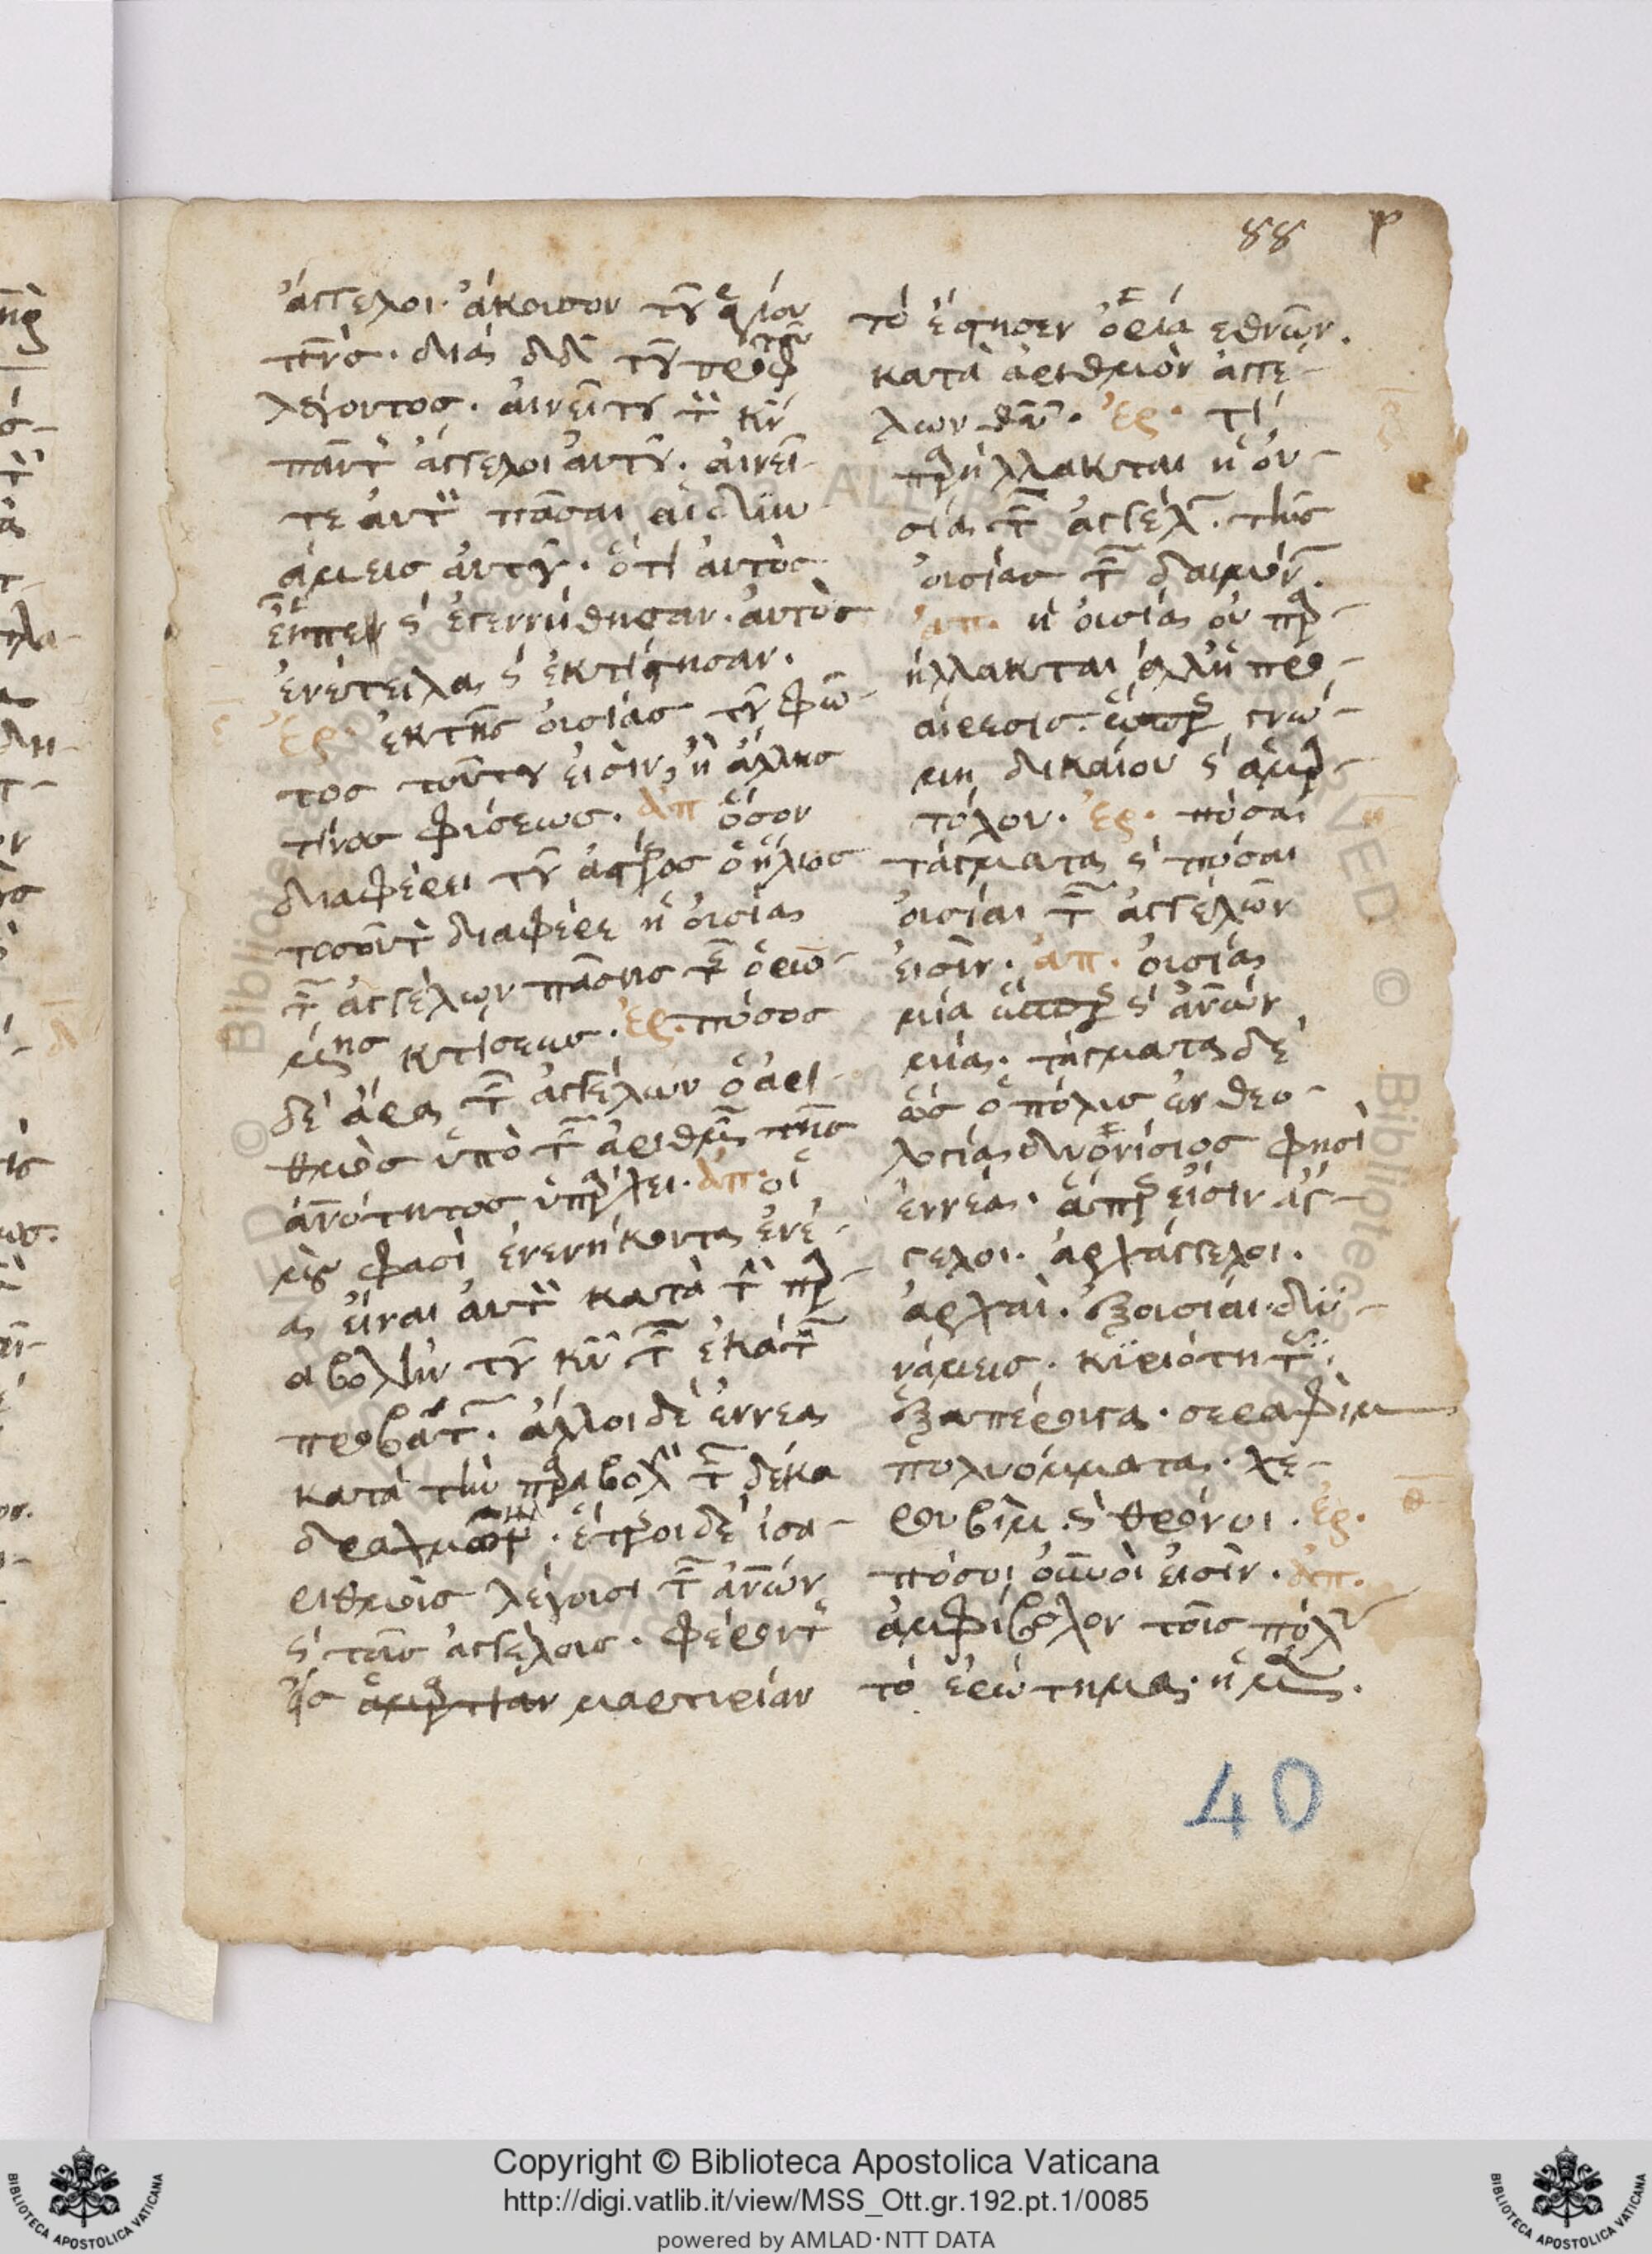 88 ρ
ἄγγελοι· ἄκουσον τοῦ ἁγίου
πν̅σ· διὰ δαδ τοῦ προφ
λέγοντος· αἰνεῖτε τὸν κν̅
πάντες ἄγγελοι αὐτοῦ· αἰνεῖ-
τε αὐτὸν πᾶσαι αἱ δυν
άμεις αὐτοῦ· ὅτι αὐτὸς
εἶπεν ϛ ἐγεννήθησαν· αὐτὸς
ἐνετείλα ϛ ἐκτίσθησαν.
ἐρ· ἐκ τῆς οὐσίας τοῦ φω-
τος τούτου εἰσὶν, ἢ ἄλλης
τινος φύσεως· ἀπ ὅσον
διαφέρει τοῦ ἀστρος ὁ ἥλιος
τοσοῦτον διαφέρε ἡ οὐσία
τῶν ἀγγέλων πάσης τῆς ὁρωμ-
ένης κτίσεως· ἐρ· πόσος
δὲ ἄρα τῶν ἀγγέλων ὁ ἀρι-
θμὸς ὑπὸ τὸν ἀριθμὸν τῆς
ἀν̅ότητος ὑπάρχει· ἀπ· οἱ
μὲν φασὶ ἐνενήκοντα ἐνέ-
α εἶναι αὐτοὺς κατὰ τὴν παρ-
αβολὴν τοῦ κυ̅ τῶν ἑκατὸν
προβάτων· ἄλλοι δὲ ἐννέα
κατὰ τὴν παραβολὴν τῶν δέκα
δραχμῶν· ἕτεροι δὲ ἰσα-
ριθμοὺς λέγουσι τῶν ἀν̅ων
ϛ τοῖς ἀγγέλοις· φέροντες
μαρτυρίαν
τὸ ἔστησεν ὅρια ἐθνῶν.
κατὰ ἀριθμὸν ἀγγέ-
λων θυ̅· ἐρ· τί
παρήλλακται ἡ οὐ-
σία τῶν ἀγγέλων· τῆς
οὐσίας τῶν δαιμόνων.
ἀπ· ἡ οὐσία οὐ παρ-
ήλλακται ἀλλ' ἡ προ-
αίρεσις· ὥσπερ γνώ-
μη δικαίου ϛ ἁμαρ-
τόλου· ἐρ· πόσαι
τάγματα ϛ πόσαι
οὐσίαι τῶν ἀγγέλων
εἰσὶν· ἀπ· οὐσία
μία ὥσπερ ϛ ἀν̅ων
μία· τάγματα δὲ
ὡς ὁ πόλις ἐν θεο-
λογία διονίσιος φησὶ
ἐννέα· ἅπερ εἰσιν ἄγ-
γελοι· ἀρχάγγελοι.
ἀρχαὶ· ἐξουσίαι· δυ-
νάμεις· κυριότητες·
ἑξαπέρυγα· σεραφὶμ
πολυόμματα· χε-
ρουβὶμ· ϛ θρόνοι· ἐρ·
πόσοι οὐνοὶ εἰσὶν· ἀπ.
ἀμφίβολον τοῖς πολλ
τὸ ἐρώτημα·
40
Copyright © Biblioteca Apostolica Vaticana
http://digi.vatlib.it/view/MSS_Ott.gr.192.pt.1/0085
powered by AMLAD·NTT DATA